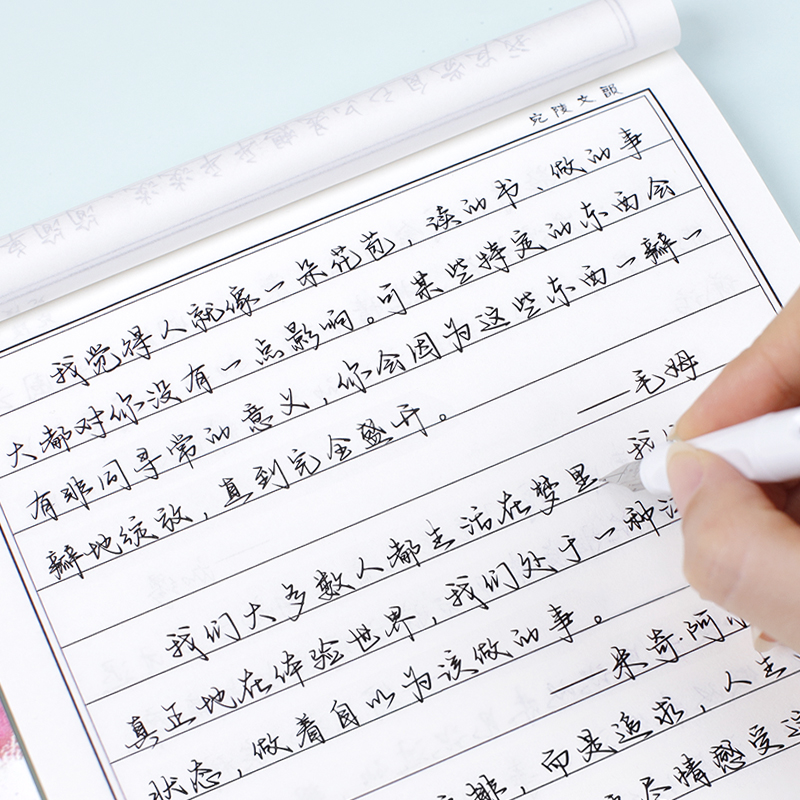 宛陵文
我觉得人就像一朵花苞，读的书、做的事
大都对你没有一点影响。可某些特定的东西会
有非同寻常的意义，你会因为这些东西一瓣一
瓣地绽放，直到完全盛开。
——毛姆
我们大多数人都生活在梦里 我
真正地在体验世界，我们处于一种
状态，做着自以为该做的事。
——米奇·阿
排，而是追求，人生
尽情感受